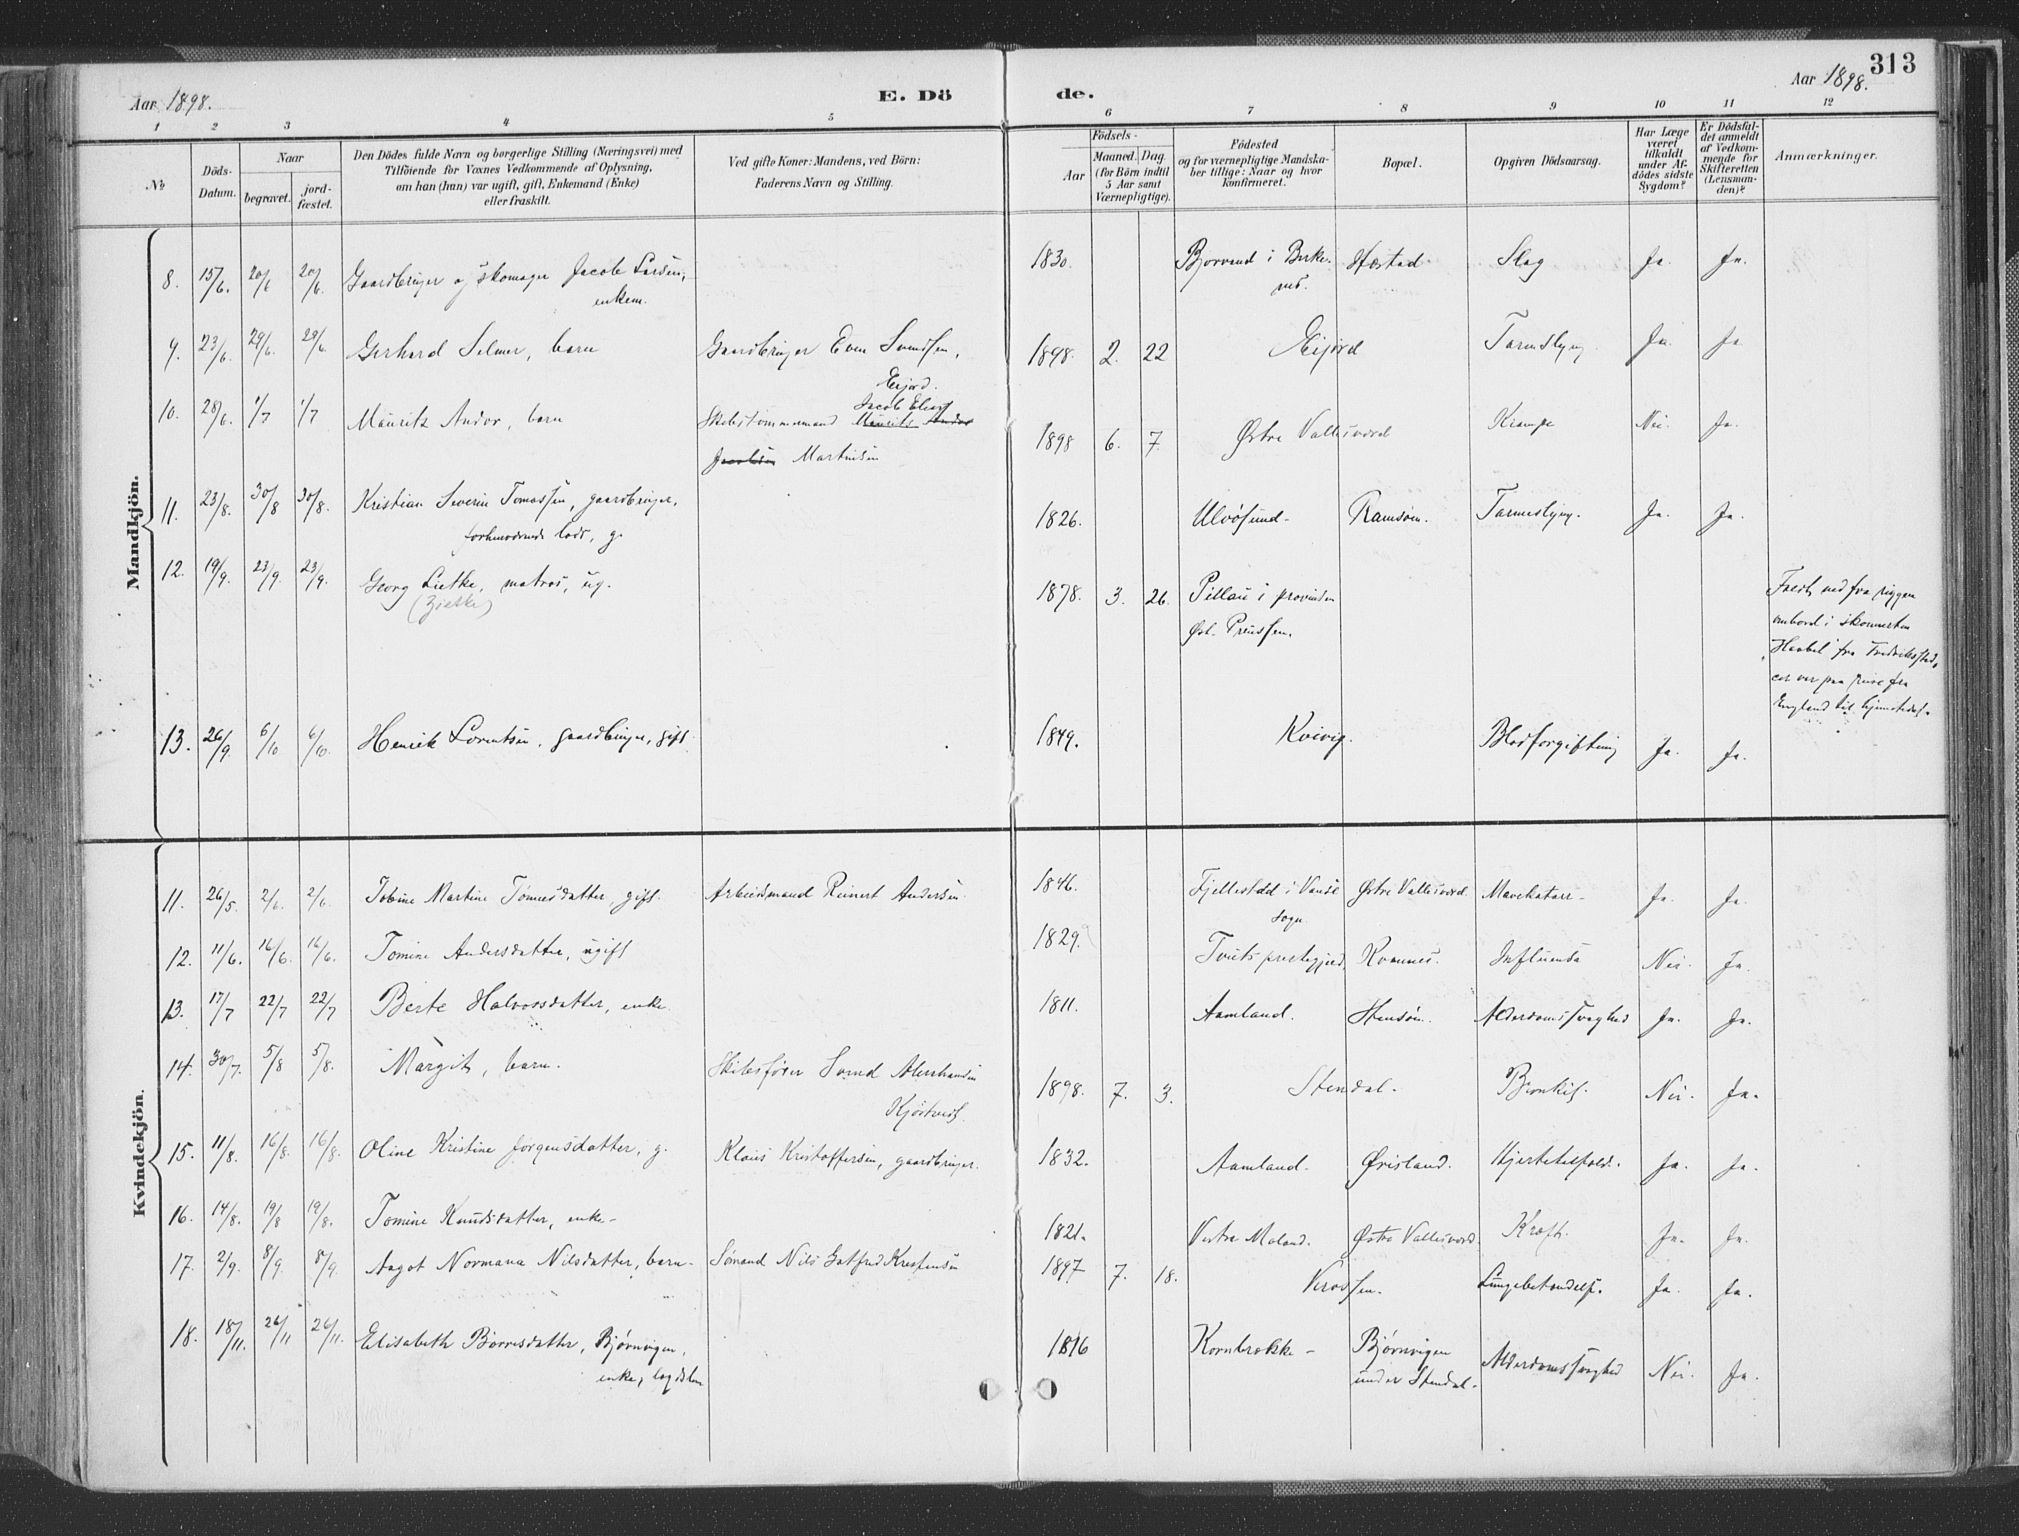 313
Aar 1898.
E. Döde.
Aar 1898.
1 2 3 4 5 6 7 8 9 10 11 12
No
Döds-Datum.
Naar
begravet.
jord-fæstet.
Den Dödes fulde Navn og borgerlige Stilling (Næringsvei) med
Tilföiende for Voxnes Vedkommende af Oplysning,
om han (hun) var ugift, gift, Enkemand (Enke)
eller fraskilt.
Ved gifte Koner: Mandens, ved Börn:
Faderens Navn og Stilling.
Födsels-
Aar
Maaned. Dag.
(for Börn indtil
5 Aar samt
Værnepligtige).
Födested
og for værnepligtige Mandska-
ber tillige: Naar og hvor
konfirmeret.
Bopæl.
Opgiven Dödsaarsag.
Har Læge
været
tilkaldt
under Af-
dödes sidste
Sygdom?
Er Dödsfal-
det anmeldt
af Vedkom-
mende for
Skifteretten
(Lensman-
den)?
Anmærkninger.
Mandkjön.
8. 15/6. 20/6 20/6 Gaardbruger og skomager Jacob Larsen, 1830. Bjorvand i Birke- Hæstad Slag Ja Ja.
enkem. nes.
9. 23/6. 29/6. 29/6 Gerhard Selmer, barn Gaardbruger Even Svendsen, 1898. 2. 22 Eijord Tarmslyng Ja. Ja
Eijord.
10. 28/6. 1/7 1/7 Maurits Andor, barn Skibstømmermand Maurits Andor 1898 6. 7. Østre Vallesværd Krampe Nei. Ja.
Jacob Elias
Jacobsen Martinsen
11. 23/8. 30/8 30/8. Kristian Severin Tomassen, gaardbruger, 1826. Ulvøsund Ramsøen. Tarmeslyng. Ja. Ja.
forhenværende lods, g.
12. 19/9. 23/9. 23/9. Georg Lietke, matros, ug. 1878. 3. 26. Pillau i provinsen
(Zietke) Øst-Preussen.
Faldt ned fra riggen
ombord i skonnerten
"Haabet" fra Fredriksstad,
der var paa reise fra
England til hjemstedet.
13. 26/9. 6/10 6/10. Henrik Lorentsen, gaardbruger, gift 1849. Kvivig. Blodforgiftning Ja. Ja.
Kvindekjön.
11. 26/5. 2/6. 2/6. Tobine Martine Tønnesdatter, gift. Arbeidsmand Reinert Andersen 1846. Fjellestad i Vanse Østre Vallesværd Mavekatarr Ja. Ja.
Sogn
12. 11/6. 16/6. 16/6. Tomine Andersdatter, ugift 1829. Tveits prestegjeld, Kvannes. Influensa Nei. Ja.
13. 17/7 22/7 22/7 Berte Halvorsdatter, enke 1811. Aamland. Stensøen. Alderdomssvaghed Ja. Ja.
14. 30/7. 5/8 5/8. Margit, barn. Skibsfører Svend Abrahamsen 1898. 7. 3. Stendal. Bronkit. Nei. Ja.
15. 11/8. 16/8. 16/8. Oline Kristine Jørgensdatter, g. Klaus Kristoffersen, gaardbruger. 1832. Aamland. Øvisland. Hjertetilfælde. Ja. Ja.
16. 14/8. 19/8 19/8. Tomine Knudsdatter, enke 1821. Vestre Moland. Østre Vallesværd. Kræft. Ja. Ja.
17. 2/9. 8/9. 8/9. Aagot Normana Nilsdatter, barn Sømand Nils Gotfred Kristensen 1897 7. 18. Krossen. Lungebetændelse. Ja. Ja.
18. 18/11. 26/11 26/11. Elisabeth Børresdatter, Bjørnvigen, 1816 Kornbrække Bjørnvigen Alderdomssvaghed Nei. Ja.
enke, lægdslem under Stendal.